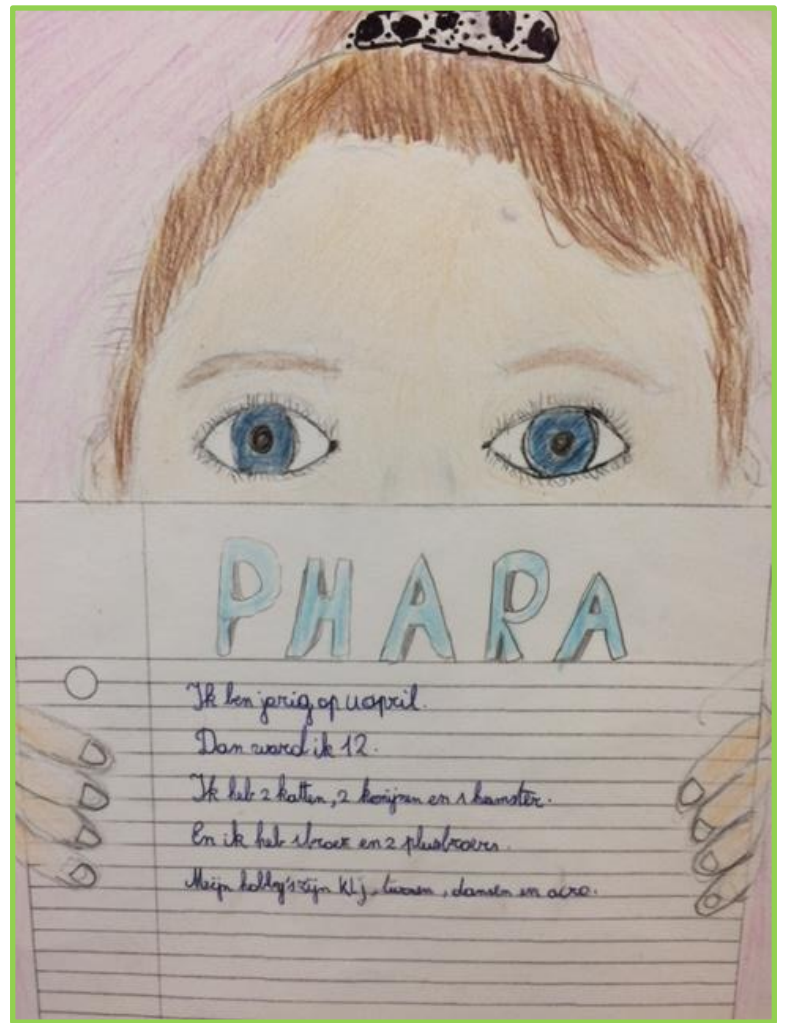 PHARA
Ik ben jarig op 4 april.
Dan word ik 12.
Ik heb 2 katten, 2 konijnen en 1 hamster.
En ik heb 1 broer en 2 plusbroers.
Mijn hobby's zijn KLJ, turnen, dansen en acro.